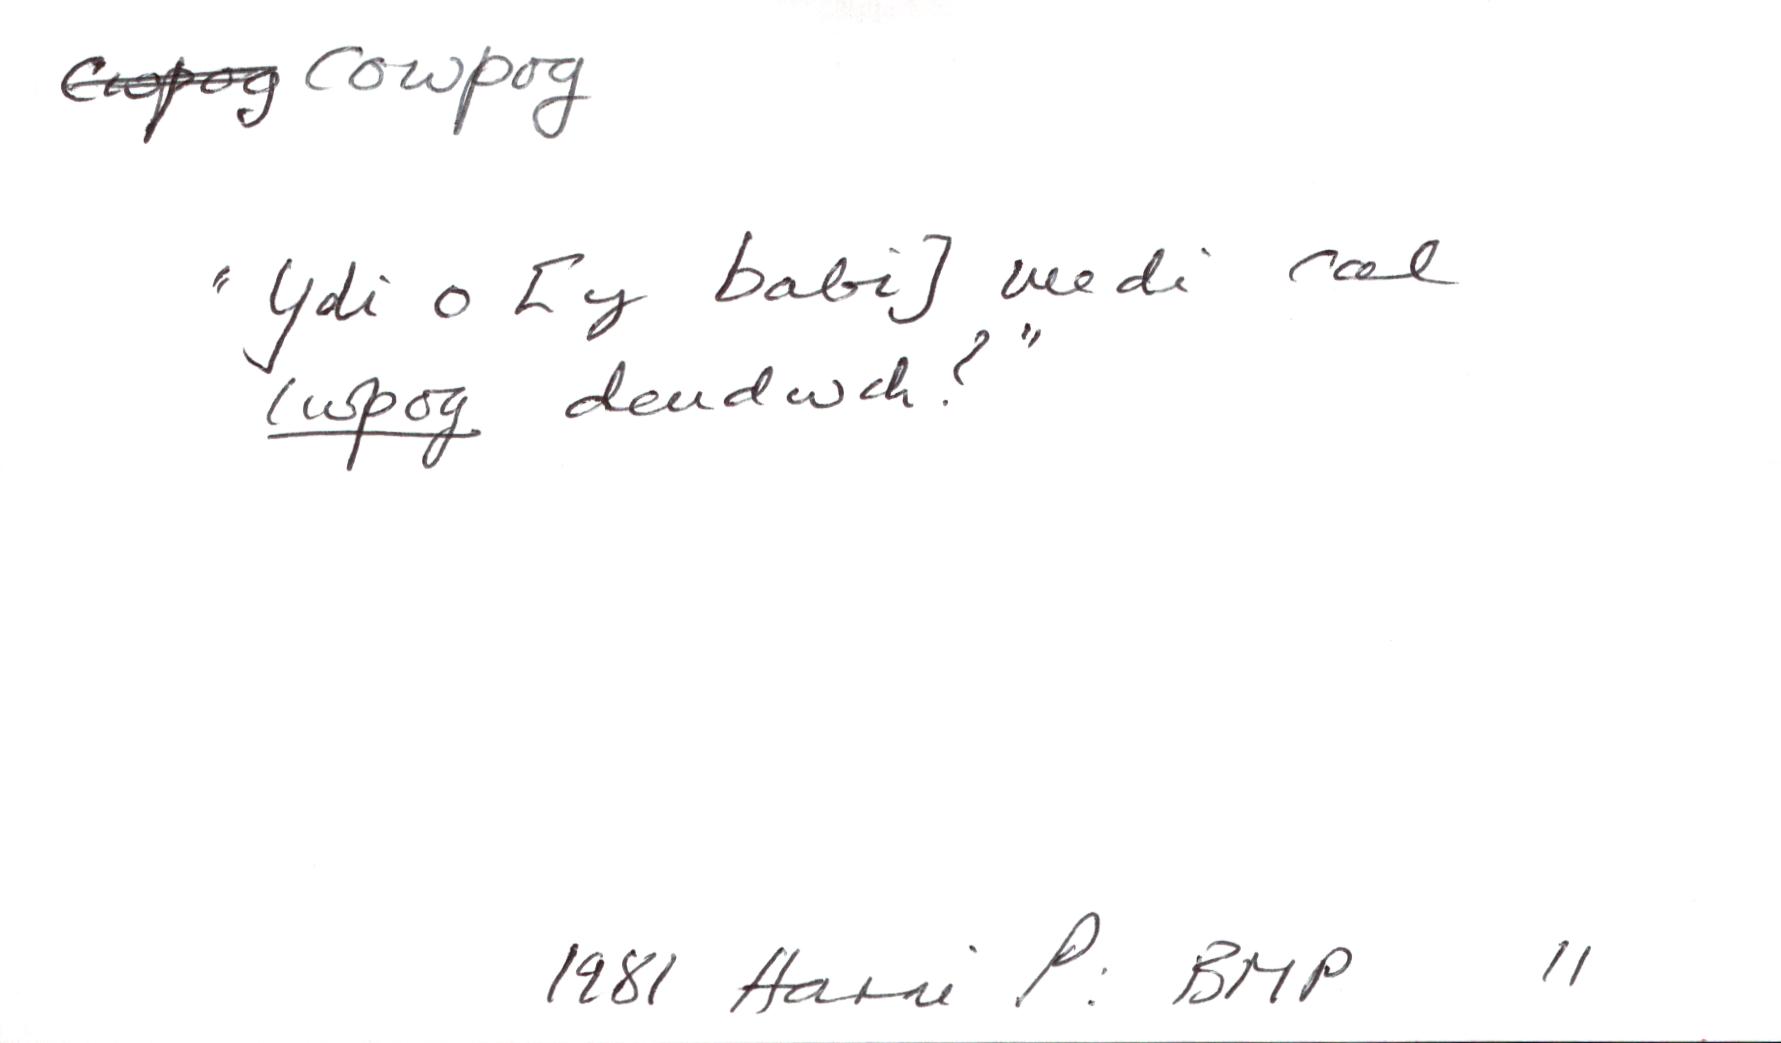 Cwpog Cowpog
"Ydi o [y babi] wedi cael
cwpog dendwch?"
1981 Harri P: BMP 11